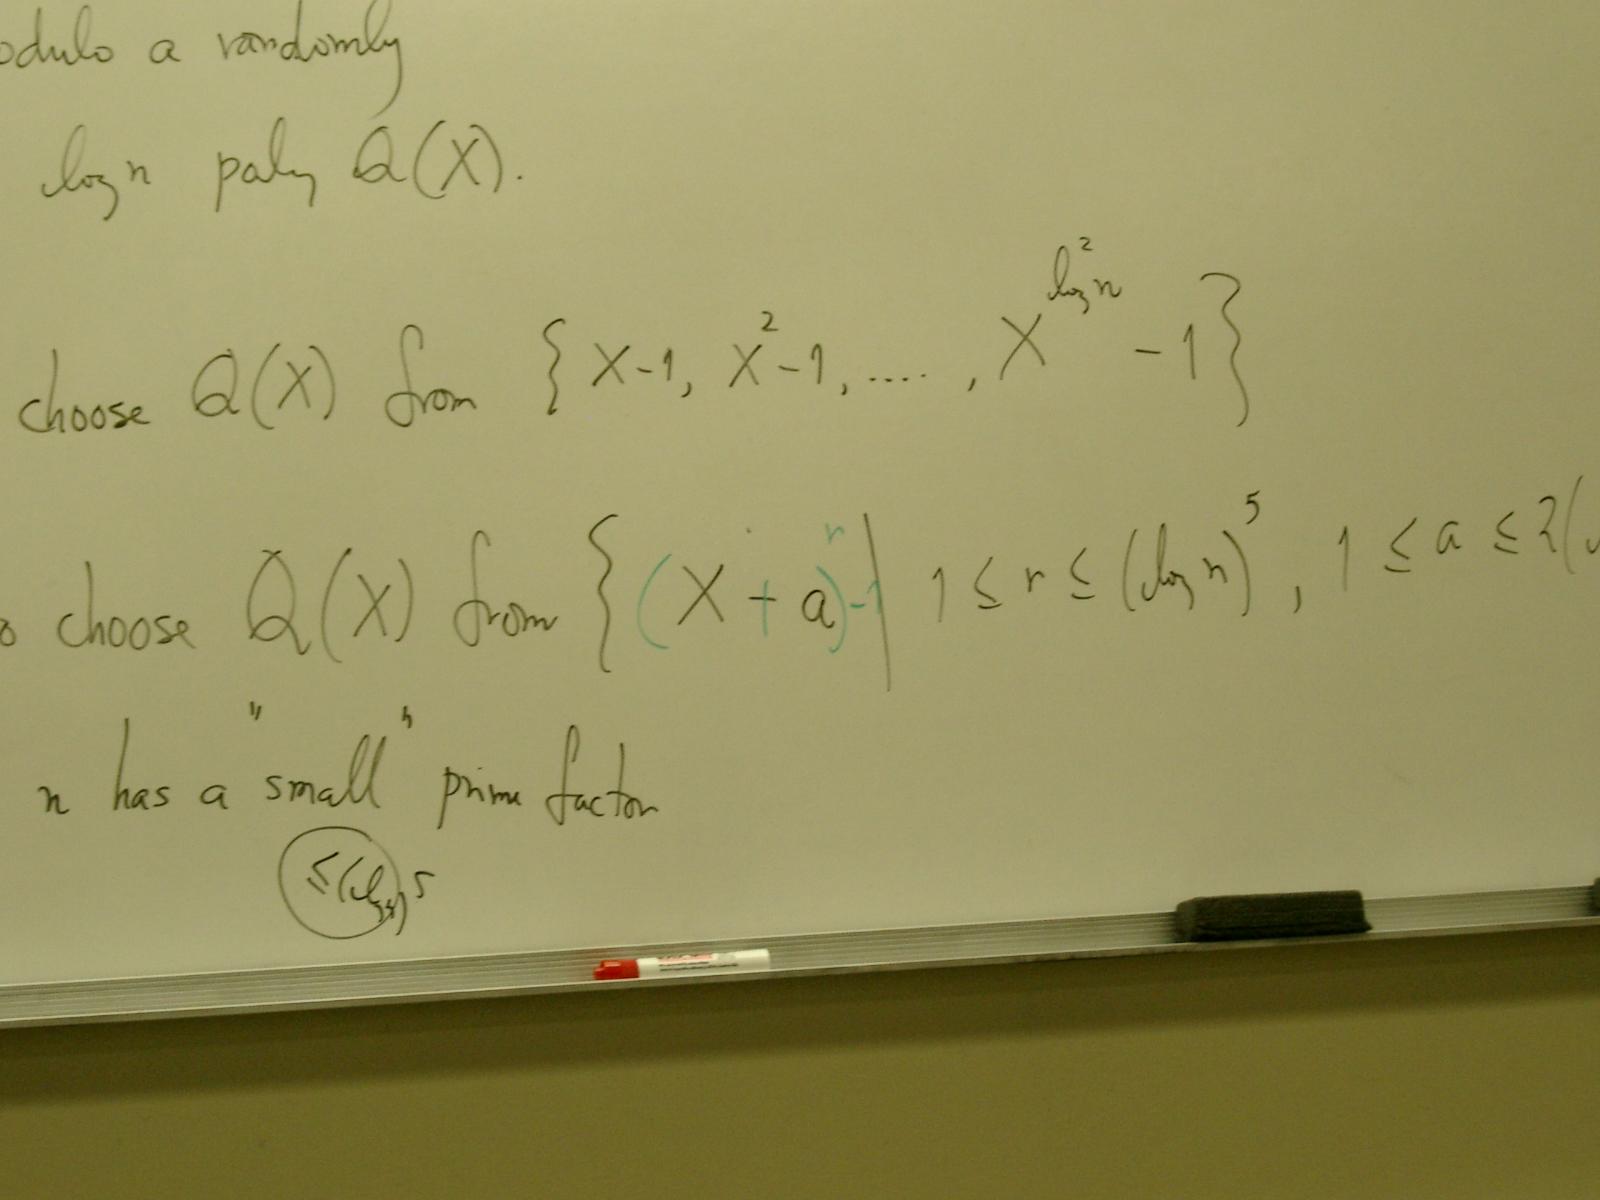 odulo a randomly
log n poly Q(X).
choose Q(X) from { X-1, X²-1, ...., X^{log² n} - 1 }
o choose Q(X) from { (X + a)^r - 1 | 1 ≤ r ≤ (log n)^5, 1 ≤ a ≤ 2(
n has a "small" prime factor
≤ (log n)^5